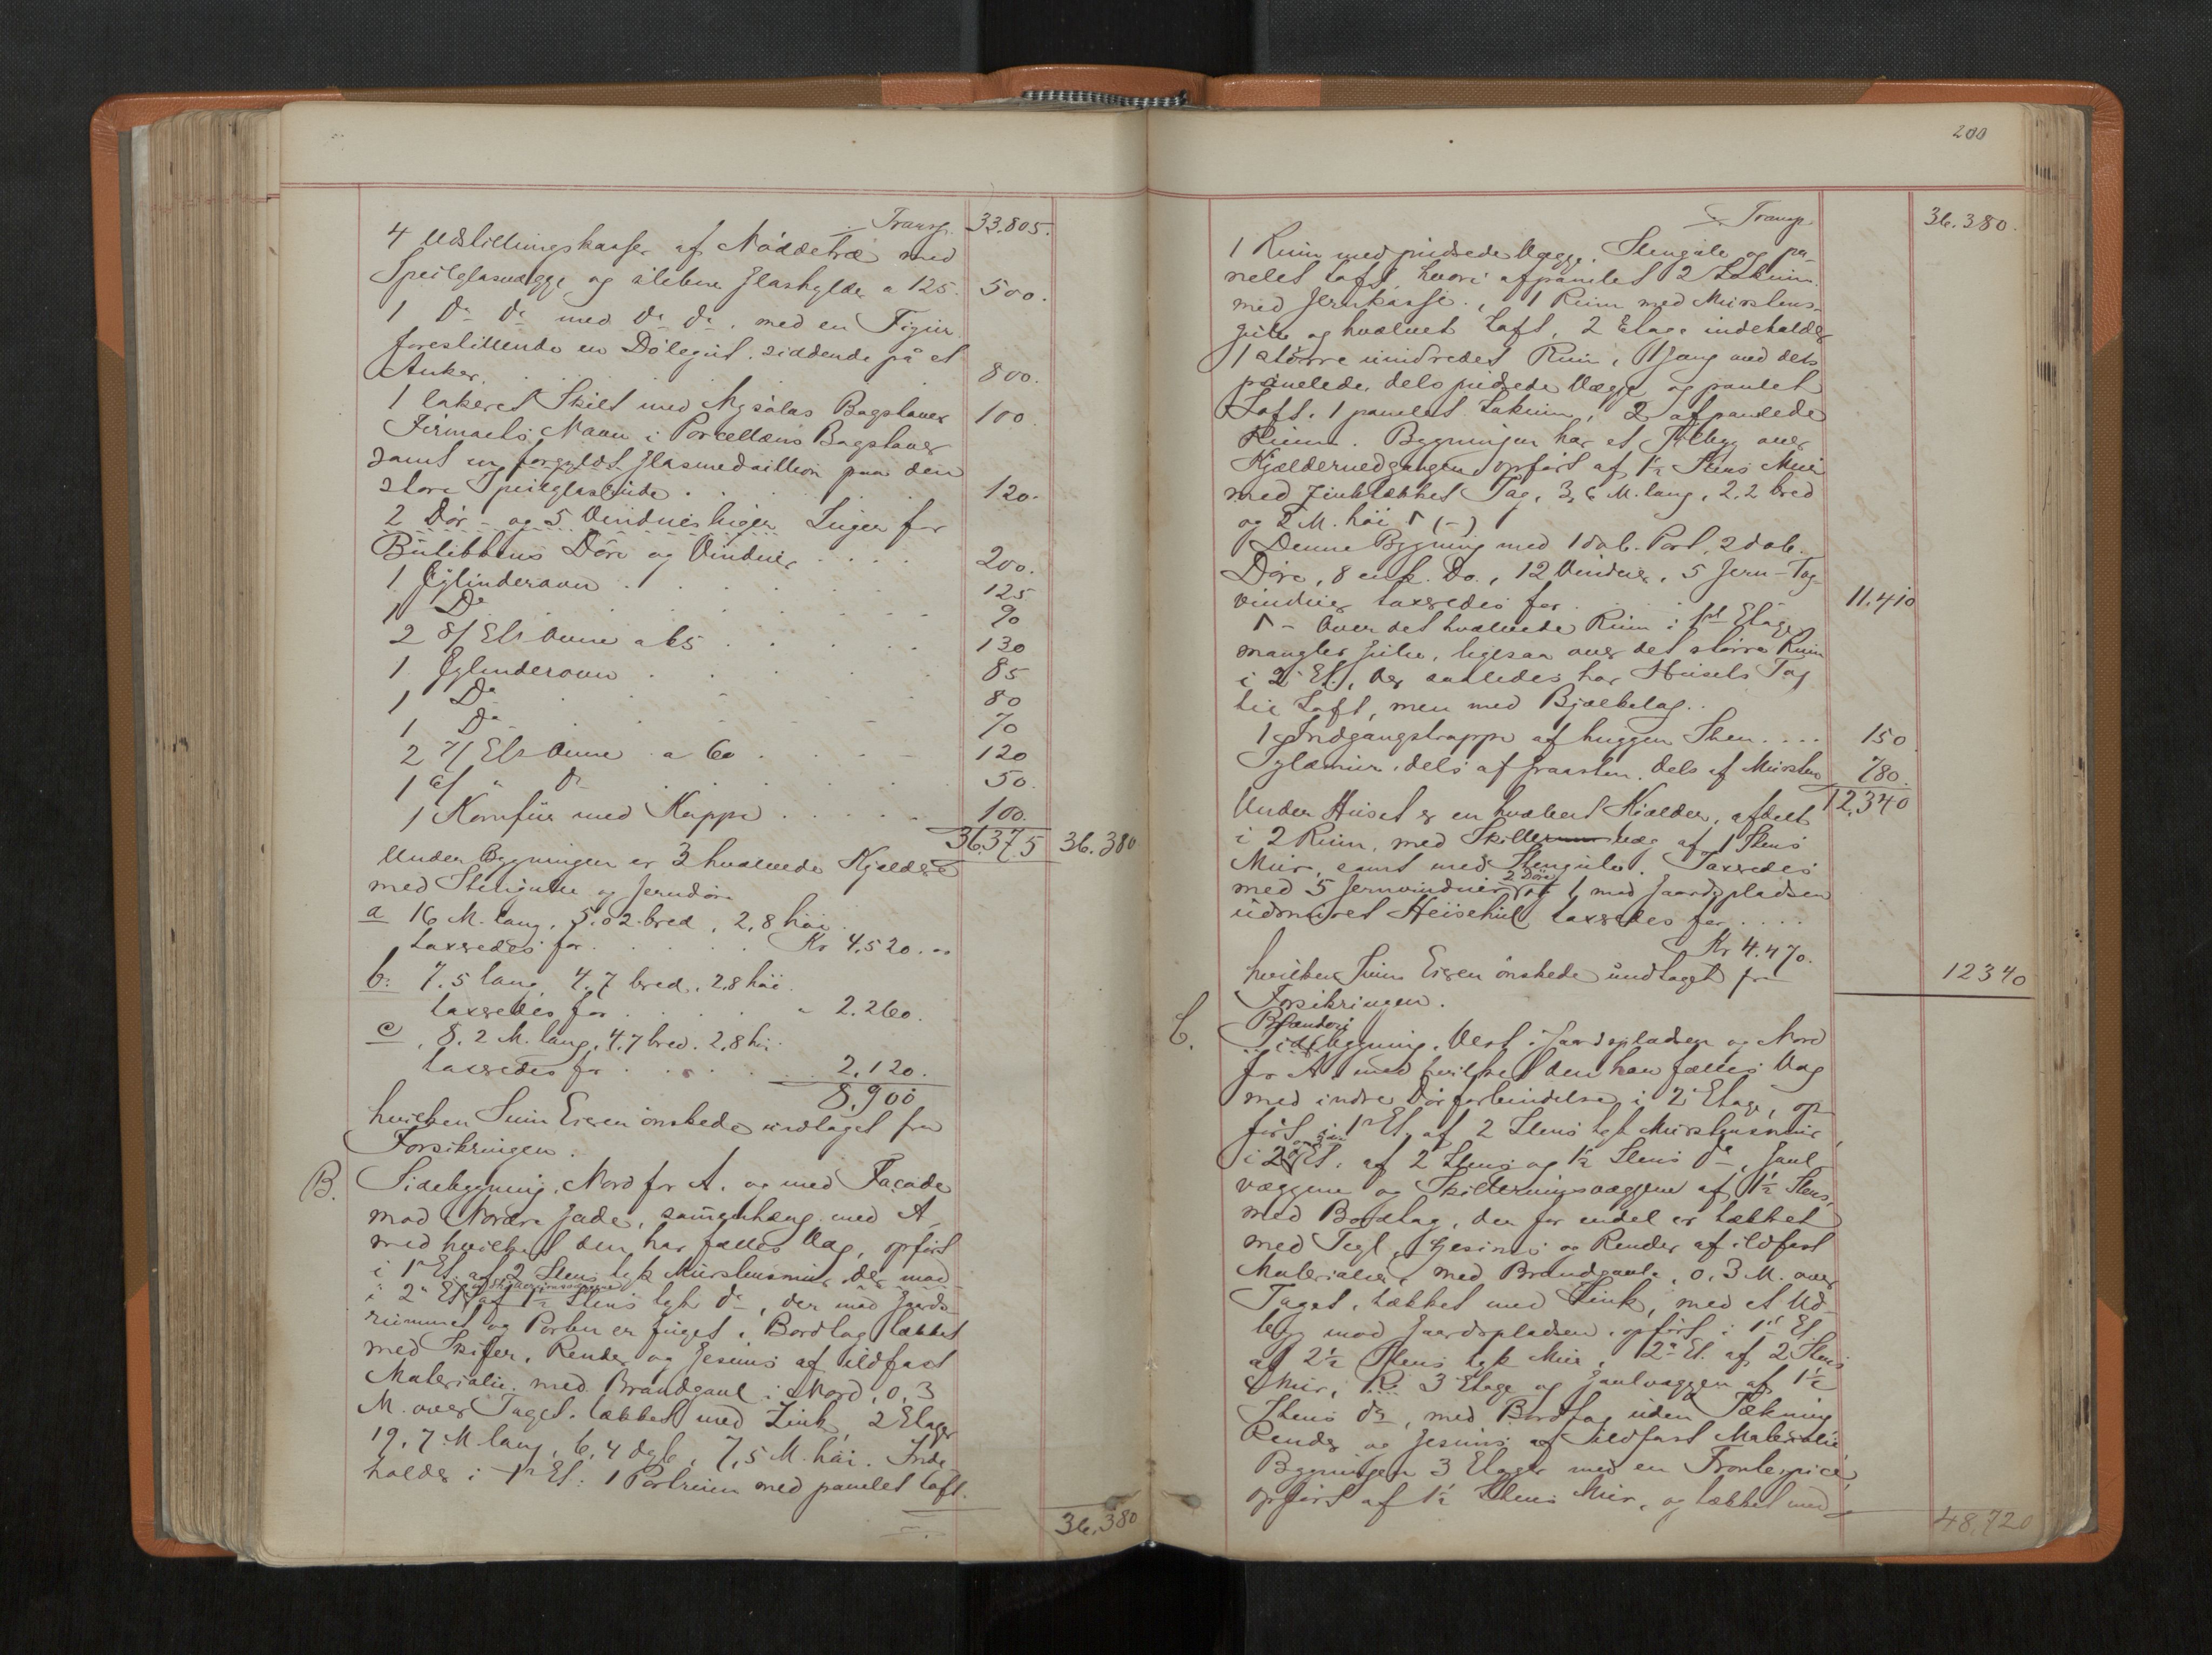 Transp. 33.805.
4 Udstillingskasser af Nøddetræ med
Speilglasvægge og slebne Glashylder a 125. 500.
1 Do Do med Do Do, med en Figur
forestillende en Dølegut siddende på et
Anker. 800.
1 lakeret Skilt med Bogstaver 100
Firmaets Navn i Porcellæns Bogstaver
samt en forgyldt Glasmedaillon paa den
store Speilglasrude 120.
2 Dør- og 5 Vindues Luger for
Butikkens Døre og Vinduer 200.
1 Cylinderovn 125
1 Do 90
2 8/ Etr Ovne a 65 130
1 Cylinderovn 85
1 Do 80
1 Do 70
2 7/ Etr Ovne a 60 120
1 6/ " Do 50.
1 Komfur med Kappe 100.
36.375 36.380
Under Bygningen er 3 hvælvede Kjeldere
med Stengulve og Jerndøre
a 16 M. lang, 5.02 bred, 2,8 høi
taxeredes for Kr 4.520.00
b. 7.5 lang 4,7 bred, 2,8 høi.
taxeredes for " 2.260.
c, 8.2 M. lang, 4,7 bred. 2,8 høi
taxeredes for 2.120.
8.900
hvilken Sum Eieren ønskede undtaget fra
Forsikringen.
B. Sidebygning, Nord for A. og med Façade
mod Nordre Gade, sammenhæng med A
med hvilket den har fælles Væg, opført
i 1ste Et. af 2 Stens tyk Murstensmur, der mod
i 2n Et af 1½ Stens tyk Do, der mod Gaards-
rummet og Porten er fuget, Bordtag tækket
med Skifer, Render og Gesims af ildfast
Materialie, med Brandgavl i Nord, 0,3
M. over Taget, tækket med Zink, 2 Etager
19,7 M lang, 6,4 dyb, 7,5 M. høi. Inde-
holder i 1n Et: 1 Portrum med panelet Loft.
36.380
200
Transp. 36.380.
1 Rum med pudsede Vægge, Stengulv og pa-
nelet Loft, hvori afpanelet 2 Lokum
med Jernkasse, 1 Rum med Murstens-
gulv og hvælvet Loft, 2 Etage indeholder
1 større uindredet Rum, 1 Gang med dels
panelede, dels pudsede Vægge og panlet
Loft, 1 panelet Lokum, 2 afpanlede
Rum. Bygningen har et Tilbyg over
Kjældernedgangen opført af 1½ Stens Mur
med Zinktækket Tag, 3,6 M. lang, 2.2 bred
og 2 M. høi Γ (-)
Denne Bygning med 1 dob. Port, 2 dob.
Døre, 8 enk. Do., 12 Vinduer, 5 Jern-Tag-
vinduer taxeredes for 11.410
Γ - Over det hvælvede Rum i 1ste Etage
mangler Gulv, ligesaa over det større Rum
i 2' Et., der saaledes har Husets Tag
til Loft, men med Bjælkelag.
1 Indgangstrappe af huggen Sten 150
Sylemur, dels af Graasten, dels af Mursten 780.
12.340
Under Huset er en hvælvet Kjælder, afdelt
i 2 Rum, med Skillevæg af 1 Stens
Mur, samt med Stengulv. Taxeredes
med 5 Jernvinduer, 2 Døre og 1 mod Gaardspladsen
udmuret Heisehul taxeredes for
Kr 4.470.
hvilken Sum Eieren ønskede undtaget fra 12340
Forsikringen.
C. Sidebygning, Vest i Gaardspladsen og Nord
for A, med hvilket den har fælles Væg
med indre Dørforbindelse i 2' Etage, op-
ført i 1n Et. af 2 Stens tyk Murstensmur,
i 2n Et. af 2 Stens og 1½ Stens Do, Gavl-
væggene og Skillerumsvæggene af 1½ Stens,
med Bordtag, der for endel er tækket
med Tegl, Gesims og Render af ildfast
Materialie, med Brandgavle, 0.3 M. over
Taget, tækket med Zink, med et Ud-
byg mod Gaardspladsen, opført i 1ste Et.
af 2½ Stens tyk Mur, 2n Et. af 2 Stens
Mur, 3 Etage og Gavlvæggen af 1½
Stens Do, med Bordtag uden Tækning
Render og Gesims af ildfast Materialie
Bygningen 3 Etager med en Frontespice,
opført af 1½ Stens Mur, og tækket med
48.720